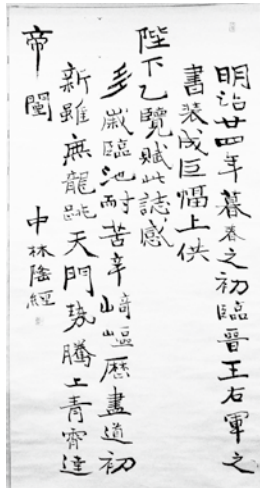 明治廿四年暮春之初臨晉王右軍之
書装成巨幅上供
陛下乙覽賦此誌感
多歳臨池耐苦辛崎嶇歴盡道初
新雖無龍跳天門勢騰上青霄達
帝閽 中林隆經